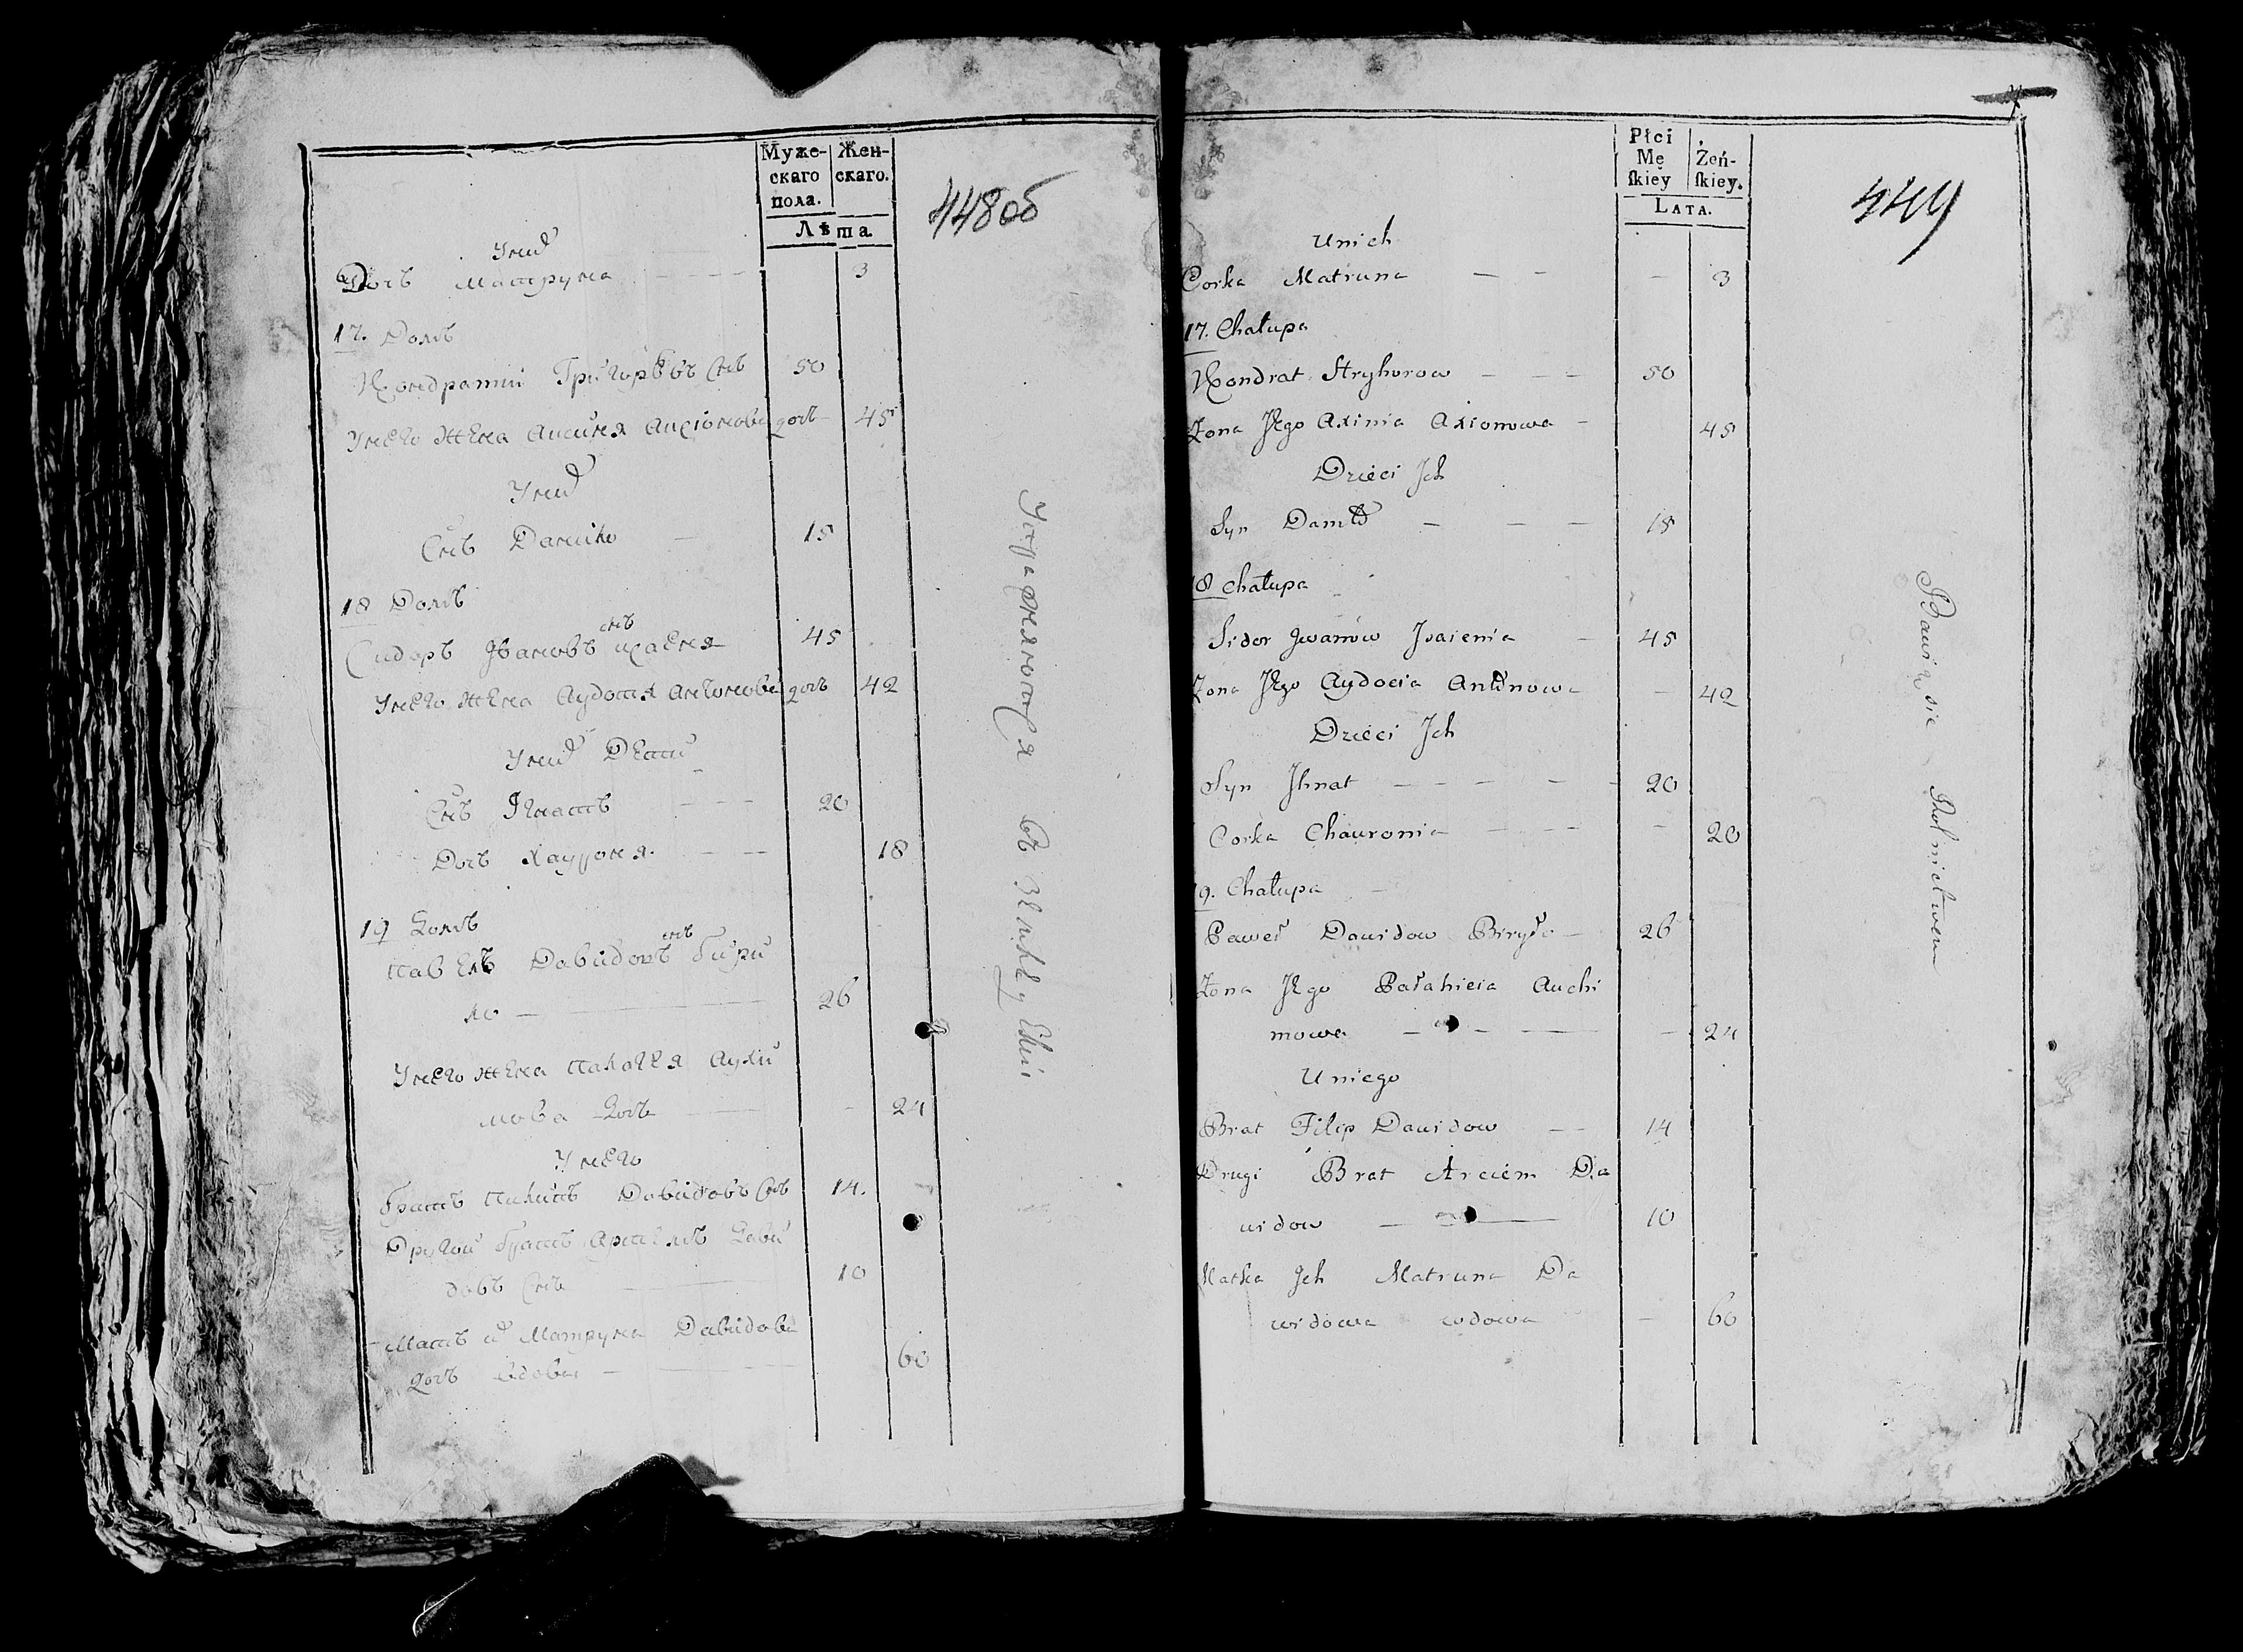 Муже-
скаго
пола.
Жен-
скаго.
Лѣта.
448об
У них
Дочъ Матруна 3
17. Домъ
Кондратий Григорьевъ Снъ 50
У него Жена Аксиня Аксіонова дочъ 45
У них
Снъ Данило 15
18 Домъ
Сидоръ Ивановъ снъ исаеня 45
У него жена Аудотя Антонова дочъ 42
У них Дети
Снъ Игнатъ 20
Дочъ Хаурония 18
19 Домъ
Павелъ Давидовъ снъ Бири
ло 26
У него жена Палагея Аухи
мова Дочъ 24
У него
Братъ Пилипъ Давидовъ Снъ 14.
Другой братъ Артемъ Дави
довъ Снъ 10
Мать их Матруна Давидова
дочъ вдова 60
Упражняются въ
Płci
Mę
skiey
Żeń-
skiey.
LATA.
449
Unich
Corka Matruna 3
17. Chałupa
Kondrat Hryhorow 50
Zona Jego Axinia Axionowa 45
Dzieci Jch
Syn Daniło 15
18 Chałupa
Sidor Jwanów Jsaienia 45
Zona Jego Aydocia Antonowa 42
Dzieci Jch
Syn Jhnat 20
Corka Chauronia 20
19. Chałupa
Paweł Dawidow Biryło 26
Zona Jego Pałahieia Auchi
mowa 24
Uniego
Brat Filip Dawidow 14
Drugi Brat Arciem Da
widow 10
Matka Jch Matruna Da
widowa wdowa 60
Bawią sie Rolnictwem